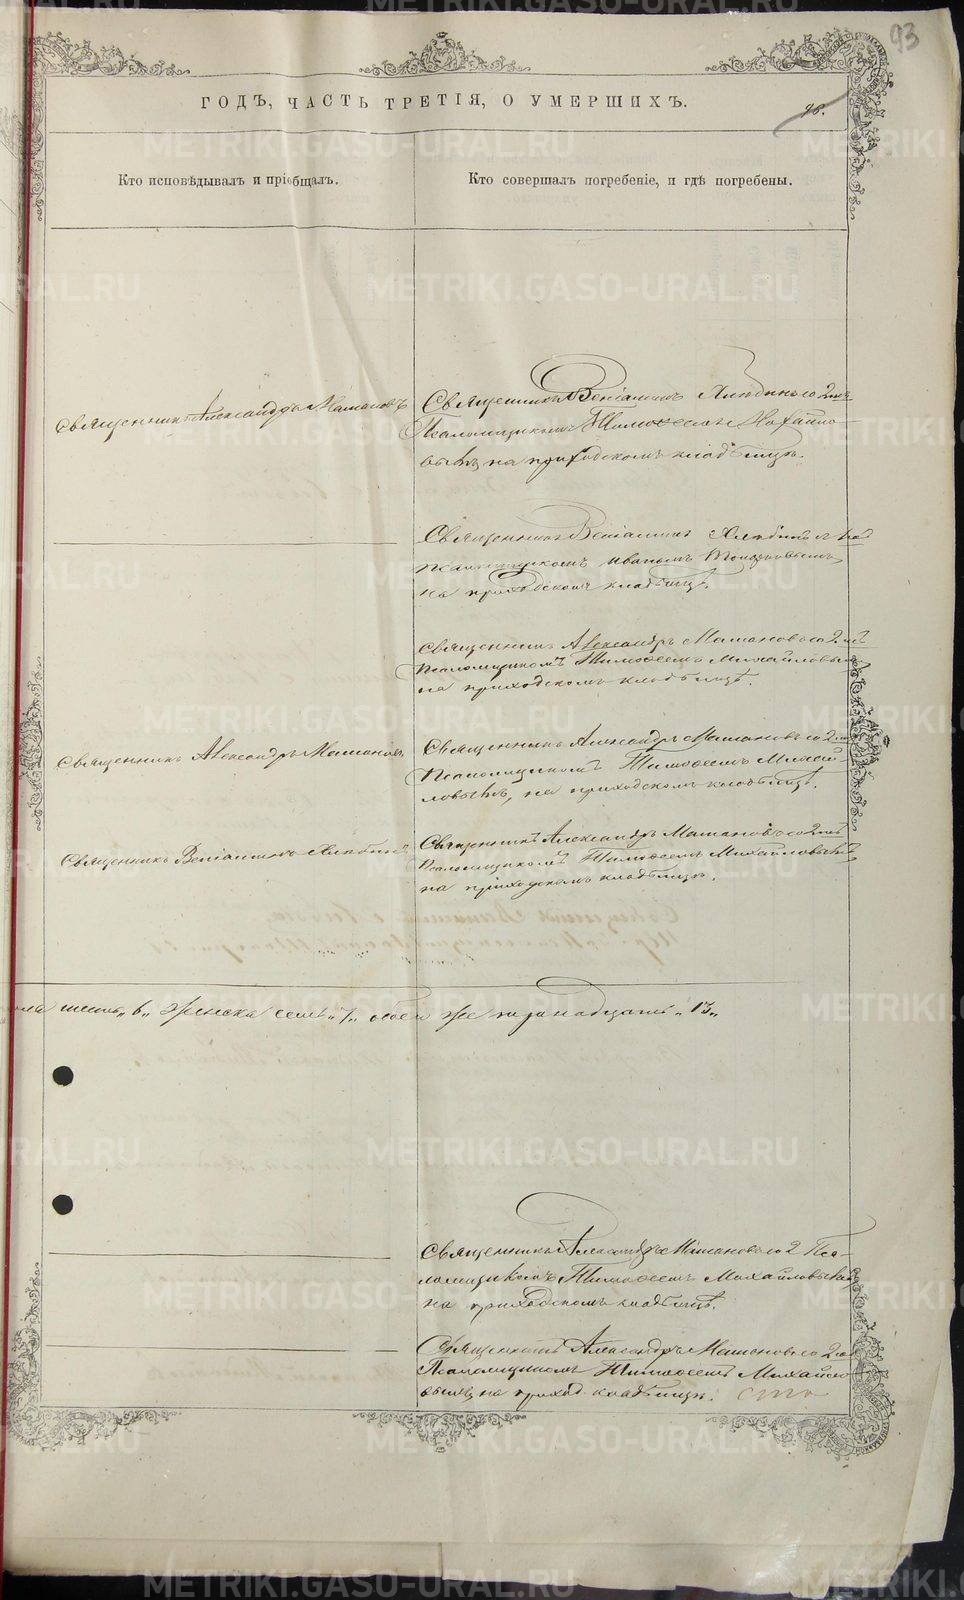 93
ГОДЪ, ЧАСТЬ ТРЕТІЯ, О УМЕРШИХЪ.
98.
Кто исповѣдывалъ и пріобщалъ.
Кто совершалъ погребеніе, и гдѣ погребены.
Священникъ Александръ
Священникъ Веніаминъ
Псаломщикомъ Тимофеемъ Михайло-
вымъ на приходскомъ кладбищѣ.
Священникъ Веніаминъ
псаломщикомъ Иваномъ
на приходскомъ кладбищѣ.
Священникъ Александръ со 2мъ
Псаломщикомъ Тимофеемъ Михайловымъ
на приходскомъ кладбищѣ.
Священникъ Александръ
Священникъ Александръ со 2мъ
Псаломщикомъ Тимофеемъ Михай-
ловымъ, на приходскомъ кладбищѣ.
Священникъ Веніаминъ
Священникъ Александръ со 2мъ
Псаломщикомъ Тимофеемъ Михайловымъ
на приходскомъ кладбищѣ.
пола шесть „6„ женска семь „7„ обоего же тринадцать „13„
Священникъ Александръ со 2 Пса-
ломщикомъ Тимофеемъ Михайловымъ
на приходскомъ кладбищѣ.
Священникъ Александръ со 2мъ
Псаломщикомъ Тимофеемъ Михайло
вымъ на приход. кладбищѣ.
METRIKI.GASO-URAL.RU